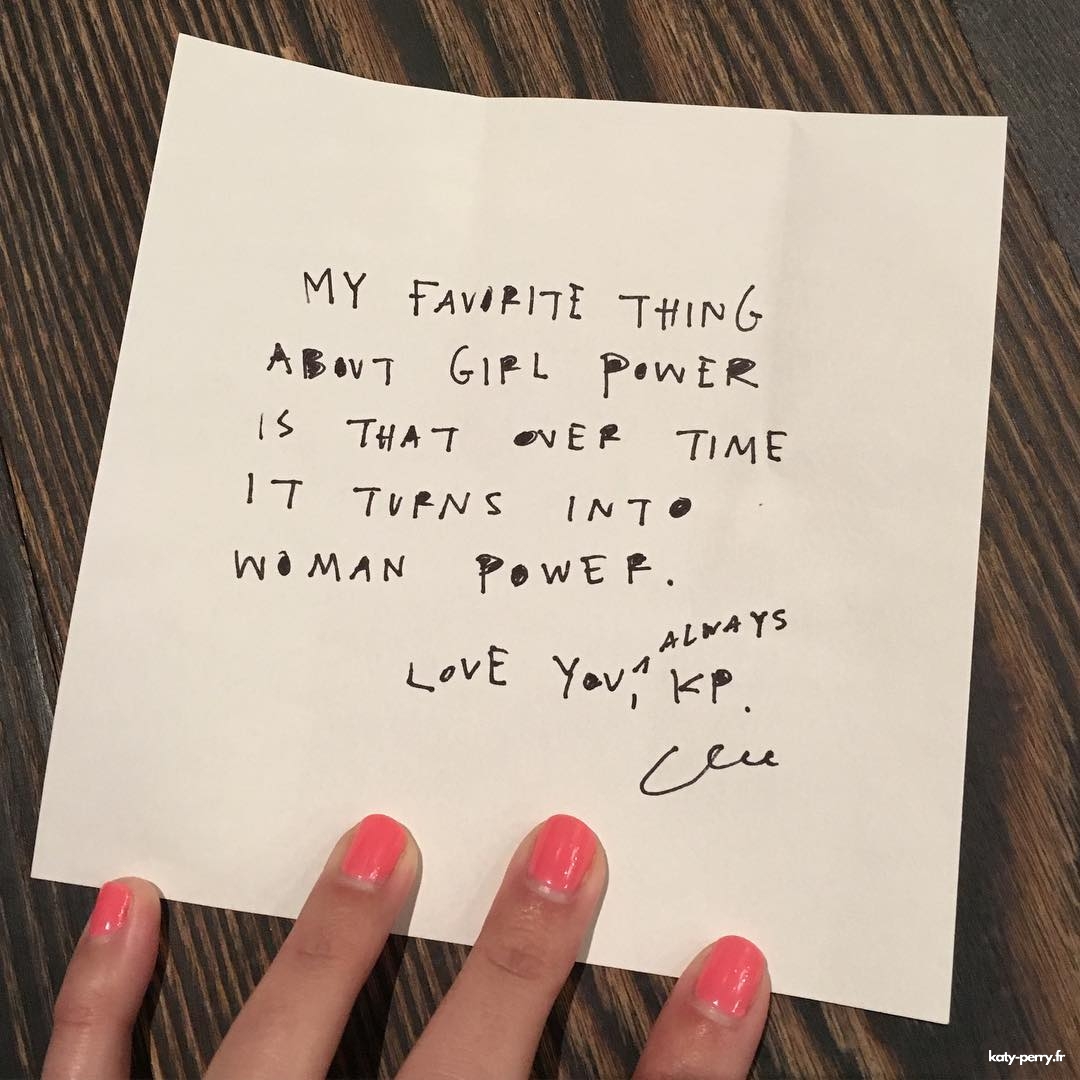 MY FAVORITE THING
ABOUT GIRL POWER
IS THAT OVER TIME
IT TURNS INTO
WOMAN POWER.
ALWAYS
LOVE YOU,^ KP.
katy-perry.fr